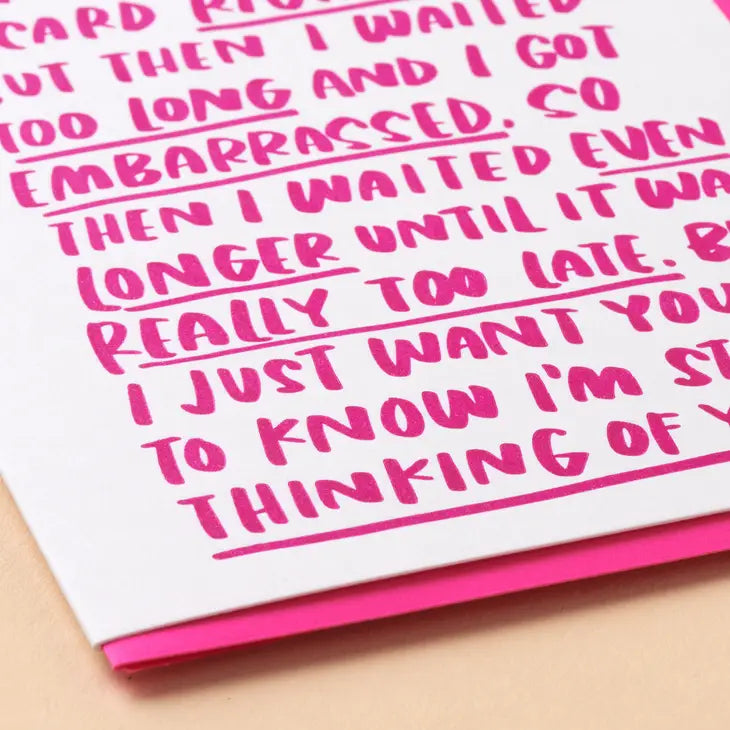 CARD
THEN I WAITED
TOO LONG AND I GOT
EMBARRASSED. SO
THEN I WAITED EVEN
LONGER UNTIL IT WA
REALLY TOO LATE. B
I JUST WANT YOU
TO KNOW I'M ST
THINKING OF Y